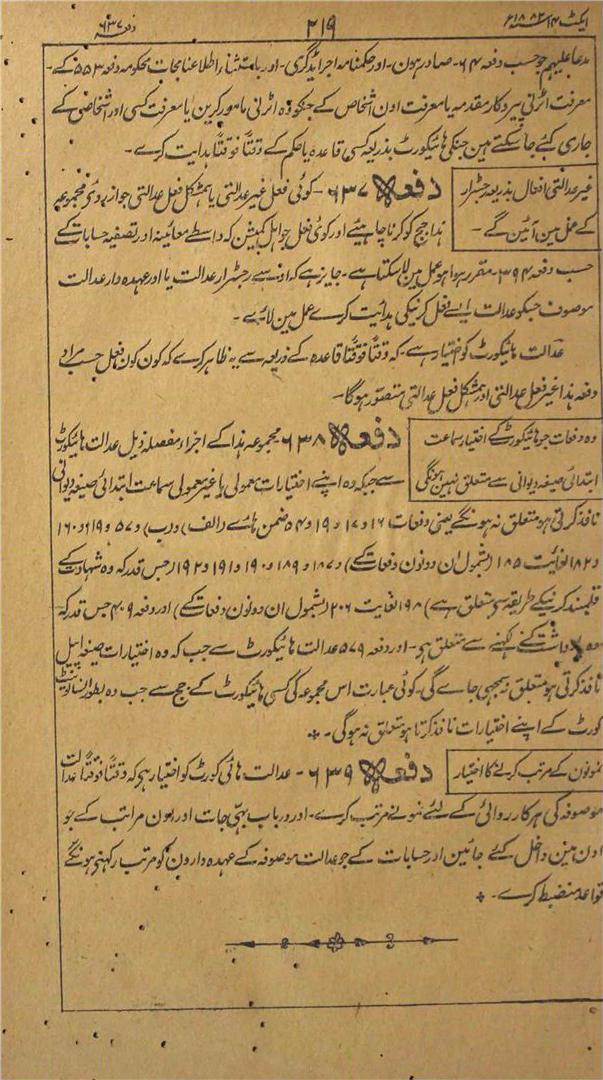 ایکٹ ۱۴ سنہ ۱۸۸۲ء
۲۱۹
دفعہ ۶۳۷
مدعا علیہم جو حسب دفعہ ۶۴ - صادر ہون - اور حکمنامہ اجراے ڈگری - اور باستثناء اطلاعنامجات محکومہ دفعہ ۵۵۳ کے -
معرفت اٹرنی پیروکار مقدمہ یا معرفت اون اشخاص کے جنکو وہ اٹرنی مامور کرین یا معرفت کسی اور اشخاص کے
جاری کئے جا سکتے ہین جنکی ہائیکورٹ بذریعہ کسی قاعدہ یا حکم کے وقتاً فوقتاً ہدایت کرے -
غیر عدالتی افعال بذریعہ رجسٹرار
کے عمل مین آئین گے -
دفعہ ۶۳۷ - کوئی فعل غیر عدالتی یا ہمشکل فعل عدالتی جو از روئے مجموعہ
ہذا جج کو کرنا چاہیئے اور کوئی فعل جو اہل کمیشن کہ واسطے معائنہ اور تصفیہ حسابات کے
حسب دفعہ ۳۹۴ - مقرر ہوا ہو عمل مین لا سکتا ہے - جایز ہے کہ اوسے رجسٹرار عدالت یا اور عہدہ دار عدالت
موصوف جسکو عدالت ایسے فعل کرنیکی ہدایت کرے عمل مین لاے -
عدالت ہائیکورٹ کو اختیار ہے - کہ وقتاً فوقتاً قاعدہ کے ذریعہ سے یہ ظاہر کرے کہ کون کون فعل حسب مراد
دفعہ ہذا غیر فعل عدالتی اور ہمشکل فعل عدالتی متصور ہوگا -
وہ دفعات جو ہائیکورٹ کے اختیار سماعت
ابتدائی صیغہ دیوانی سے متعلق نہین ہونگی
دفعہ ۶۳۸ مجموعہ ہذا کے اجزاء مفصلہ ذیل عدالت ہائیکورٹ
سے جبکہ وہ اپنے اختیارات معمولی یا غیر معمولی سماعت ابتدائی صیغہ دیوانی
نافذ کرتی ہو متعلق نہ ہونگے یعنی دفعات ۱۶ و ۱۷ و ۱۹ و ۵۴ ضمن ہاے (الف) و (ب) و ۵۷ و ۱۱۹ و ۱۶۰
و ۱۸۲ لغایت ۱۸۵ (بشمول ان دونون دفعات کے) و ۱۸۷ و ۱۸۹ و ۱۹۰ و ۱۹۱ و ۱۹۲ (جس قدر کہ وہ شہادت کے
قلمبند کرنیکے طریقہ سے متعلق ہے) ۱۹۸ لغایت ۲۰۶ (بشمول ان دونون دفعات کے) اور دفعہ ۴۰۹ جس قدر کہ
وہ یادداشت کے لکھنے سے متعلق ہو - اور دفعہ ۵۷۹ عدالت ہائیکورٹ سے جب کہ وہ اختیارات صیغہ اپیل
نافذ کرتی ہو متعلق نہ سمجھی جاے گی - کوئی عبارت اس مجموعہ کی کسی ہائیکورٹ کے جج سے جب وہ بطور انسالونٹ
کورٹ کے اپنے اختیارات نافذ کرتا ہو متعلق نہ ہوگی -
نمونون کے مرتب کرنے کا اختیار
دفعہ ۶۳۹ - عدالت ہائی کورٹ کو اختیار ہو کہ وقتاً فوقتاً عدالت
موصوفہ کی ہر کارروائی کے لئے نمونے مرتب کرے - اور در باب بہی جات اور اون مراتب کے جو
اون مین داخل کئے جائین اور حسابات کے جو عدالت موصوفہ کے عہدہ دارون کو مرتب رکھنی ہونگے
قواعد منضبط کرے -